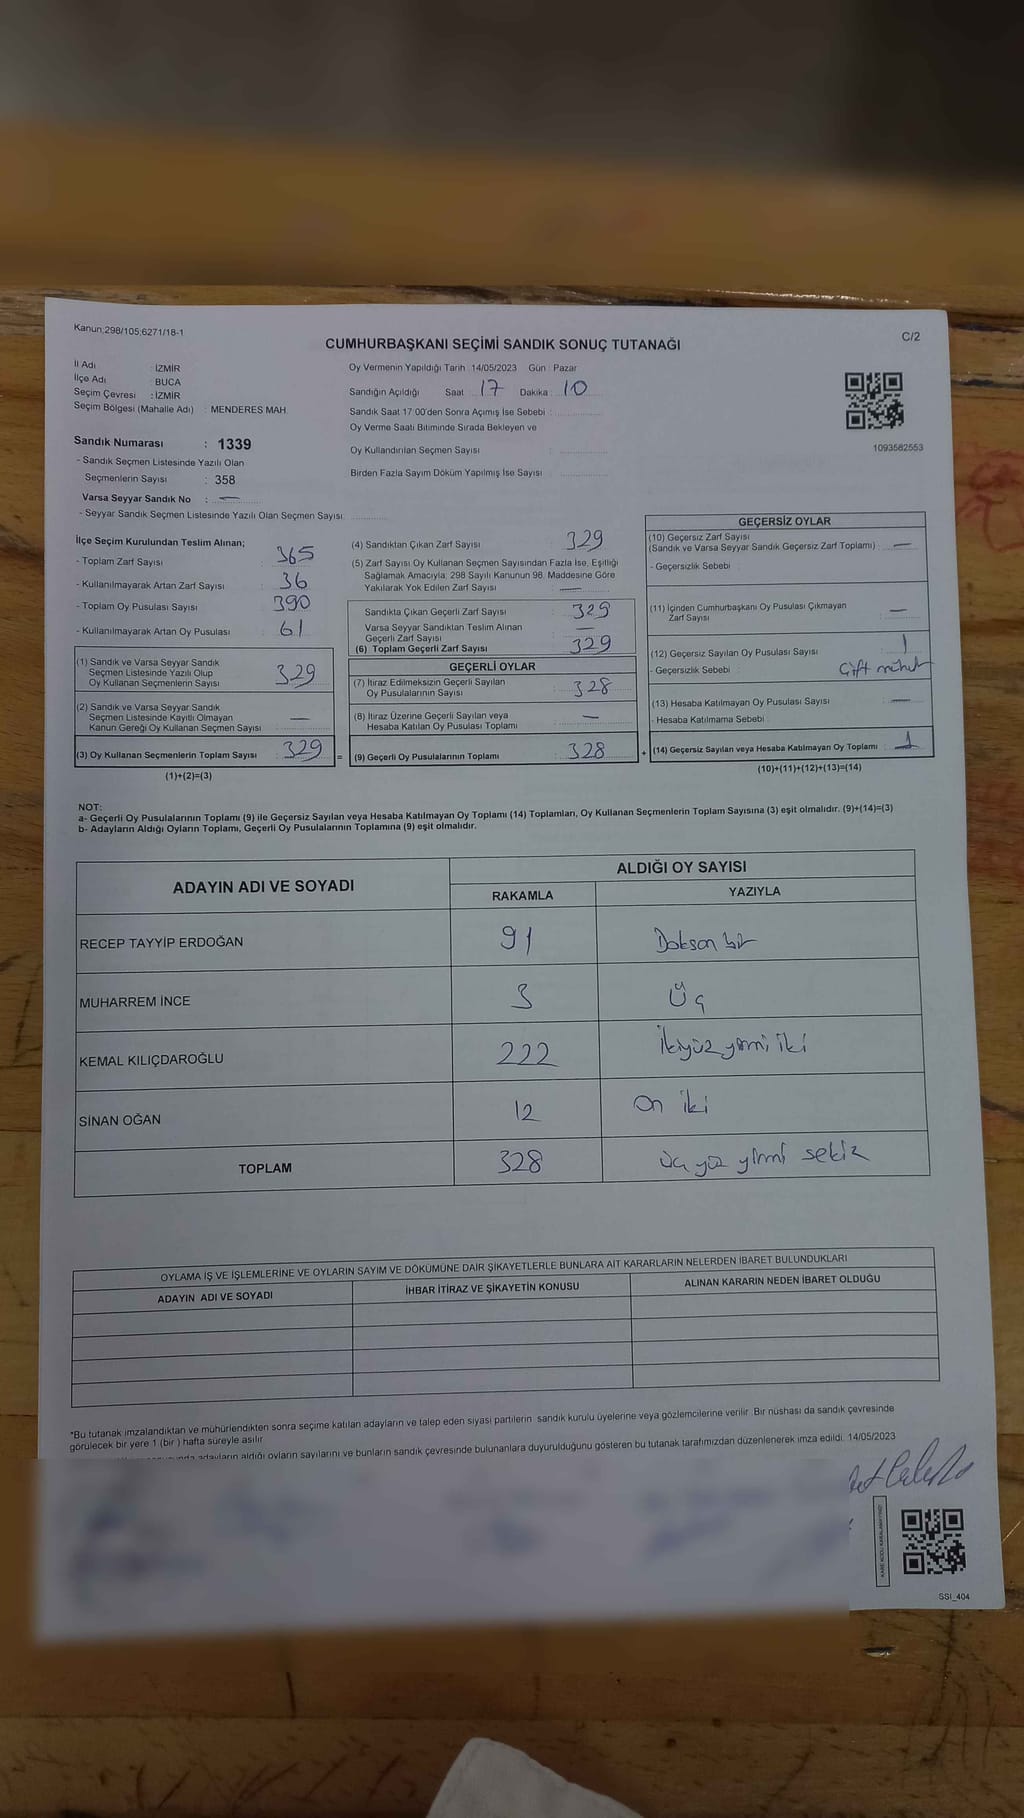 Kanun;298/105;6271/18-1
C/2
CUMHURBAŞKANI SEÇİMİ SANDIK SONUÇ TUTANAĞI
İl Adı : İZMİR
İlçe Adı : BUCA
Seçim Çevresi : İZMİR
Seçim Bölgesi (Mahalle Adı) : MENDERES MAH.
Sandık Numarası : 1339
- Sandık Seçmen Listesinde Yazılı Olan
Seçmenlerin Sayısı : 358
Varsa Seyyar Sandık No : —
- Seyyar Sandık Seçmen Listesinde Yazılı Olan Seçmen Sayısı
Oy Vermenin Yapıldığı Tarih 14/05/2023 Gün : Pazar
Sandığın Açıldığı Saat 17 Dakika : 10
Sandık Saat 17:00'den Sonra Açımış İse Sebebi :
Oy Verme Saati Bitiminde Sırada Bekleyen ve
Oy Kullandırılan Seçmen Sayısı :
Birden Fazla Sayım Döküm Yapılmış İse Sayısı :
1093582553
İlçe Seçim Kurulundan Teslim Alınan;
- Toplam Zarf Sayısı : 365
- Kullanılmayarak Artan Zarf Sayısı : 36
- Toplam Oy Pusulası Sayısı : 390
- Kullanılmayarak Artan Oy Pusulası : 61
(1) Sandık ve Varsa Seyyar Sandık
Seçmen Listesinde Yazılı Olup
Oy Kullanan Seçmenlerin Sayısı : 329
(2) Sandık ve Varsa Seyyar Sandık
Seçmen Listesinde Kayıtlı Olmayan
Kanun Gereği Oy Kullanan Seçmen Sayısı : —
(3) Oy Kullanan Seçmenlerin Toplam Sayısı : 329 =
(1)+(2)=(3)
(4) Sandıktan Çıkan Zarf Sayısı : 329
(5) Zarf Sayısı Oy Kullanan Seçmen Sayısından Fazla İse, Eşitliği
Sağlamak Amacıyla; 298 Sayılı Kanunun 98. Maddesine Göre
Yakılarak Yok Edilen Zarf Sayısı : —
Sandıkta Çıkan Geçerli Zarf Sayısı : 329
Varsa Seyyar Sandıktan Teslim Alınan
Geçerli Zarf Sayısı : —
(6) Toplam Geçerli Zarf Sayısı : 329
GEÇERLİ OYLAR
(7) İtiraz Edilmeksizin Geçerli Sayılan
Oy Pusulalarının Sayısı : 328
(8) İtiraz Üzerine Geçerli Sayılan veya
Hesaba Katılan Oy Pusulası Toplamı : —
(9) Geçerli Oy Pusulalarının Toplamı : 328 +
GEÇERSİZ OYLAR
(10) Geçersiz Zarf Sayısı
(Sandık ve Varsa Seyyar Sandık Geçersiz Zarf Toplamı) : —
- Geçersizlik Sebebi :
(11) İçinden Cumhurbaşkanı Oy Pusulası Çıkmayan
Zarf Sayısı : —
(12) Geçersiz Sayılan Oy Pusulası Sayısı : 1
- Geçersizlik Sebebi : Çift mühür
(13) Hesaba Katılmayan Oy Pusulası Sayısı : —
- Hesaba Katılmama Sebebi :
(14) Geçersiz Sayılan veya Hesaba Katılmayan Oy Toplamı : 1
(10)+(11)+(12)+(13)=(14)
NOT:
a- Geçerli Oy Pusulalarının Toplamı (9) ile Geçersiz Sayılan veya Hesaba Katılmayan Oy Toplamı (14) Toplamları, Oy Kullanan Seçmenlerin Toplam Sayısına (3) eşit olmalıdır. (9)+(14)=(3)
b- Adayların Aldığı Oyların Toplamı, Geçerli Oy Pusulalarının Toplamına (9) eşit olmalıdır.
ADAYIN ADI VE SOYADI
ALDIĞI OY SAYISI
RAKAMLA YAZIYLA
RECEP TAYYİP ERDOĞAN 91 Doksan bir
MUHARREM İNCE 3 Üç
KEMAL KILIÇDAROĞLU 222 İkiyüz yirmi iki
SİNAN OĞAN 12 On iki
TOPLAM 328 üç yüz yirmi sekiz
OYLAMA İŞ VE İŞLEMLERİNE VE OYLARIN SAYIM VE DÖKÜMÜNE DAİR ŞİKAYETLERLE BUNLARA AİT KARARLARIN NELERDEN İBARET BULUNDUKLARI
ADAYIN ADI VE SOYADI İHBAR İTİRAZ VE ŞİKAYETİN KONUSU ALINAN KARARIN NEDEN İBARET OLDUĞU
*Bu tutanak imzalandıktan ve mühürlendikten sonra seçime katılan adayların ve talep eden siyasi partilerin sandık kurulu üyelerine veya gözlemcilerine verilir. Bir nüshası da sandık çevresinde
görülecek bir yere 1 (bir ) hafta süreyle asılır.
adayların aldığı oyların sayılarını ve bunların sandık çevresinde bulunanlara duyurulduğunu gösteren bu tutanak tarafımızdan düzenlenerek imza edildi. 14/05/2023
KARE KODU KARALAMAYINIZ!
SSİ_404